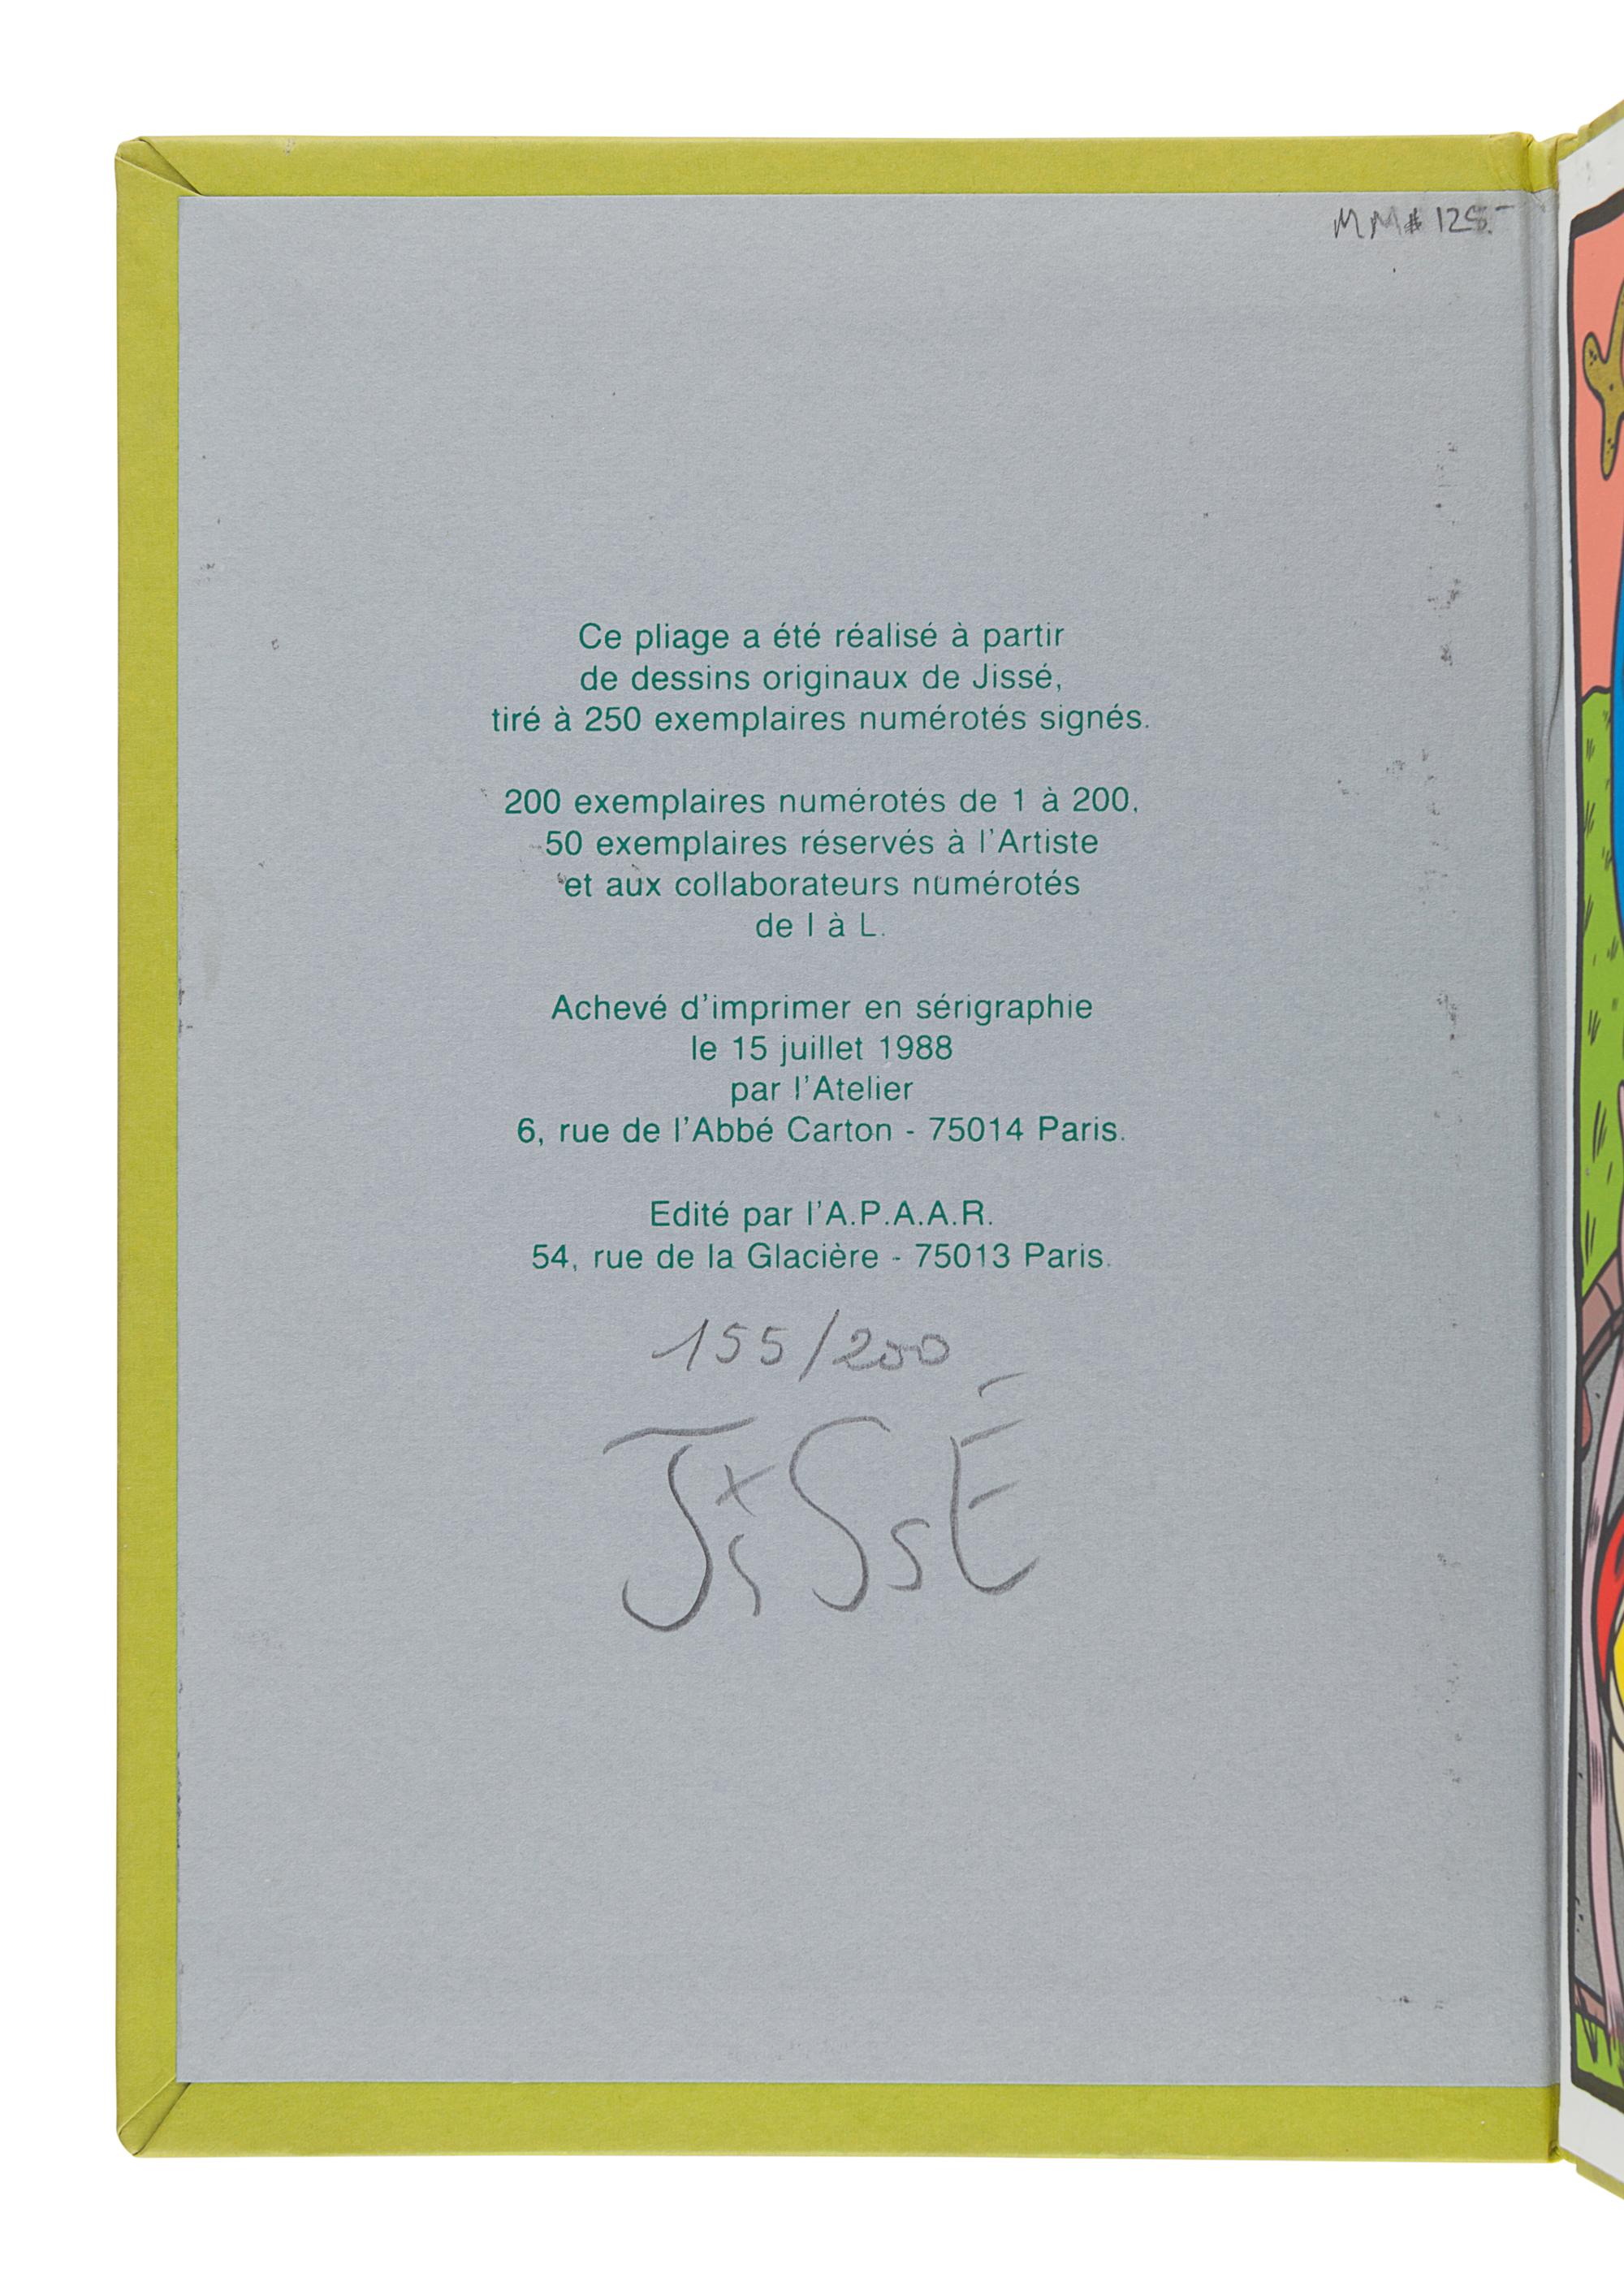 MM$ 125.-
Ce pliage a été réalisé à partir
de dessins originaux de Jissé,
tiré à 250 exemplaires numérotés signés.
200 exemplaires numérotés de 1 à 200,
50 exemplaires réservés à l'Artiste
et aux collaborateurs numérotés
de I à L.
Achevé d'imprimer en sérigraphie
le 15 juillet 1988
par l'Atelier
6, rue de l'Abbé Carton - 75014 Paris.
Edité par l'A.P.A.A.R.
54, rue de la Glacière - 75013 Paris.
155/200
JiSsÉ